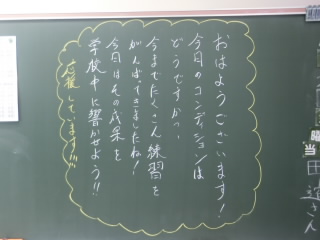 おはようございます!
今日のコンディションは
どうですかっ
今までたくさん練習を
がんばってきましたね!
今日はその成果を
学校中に響かせよう!!
応援しています!!!
当
田
さん